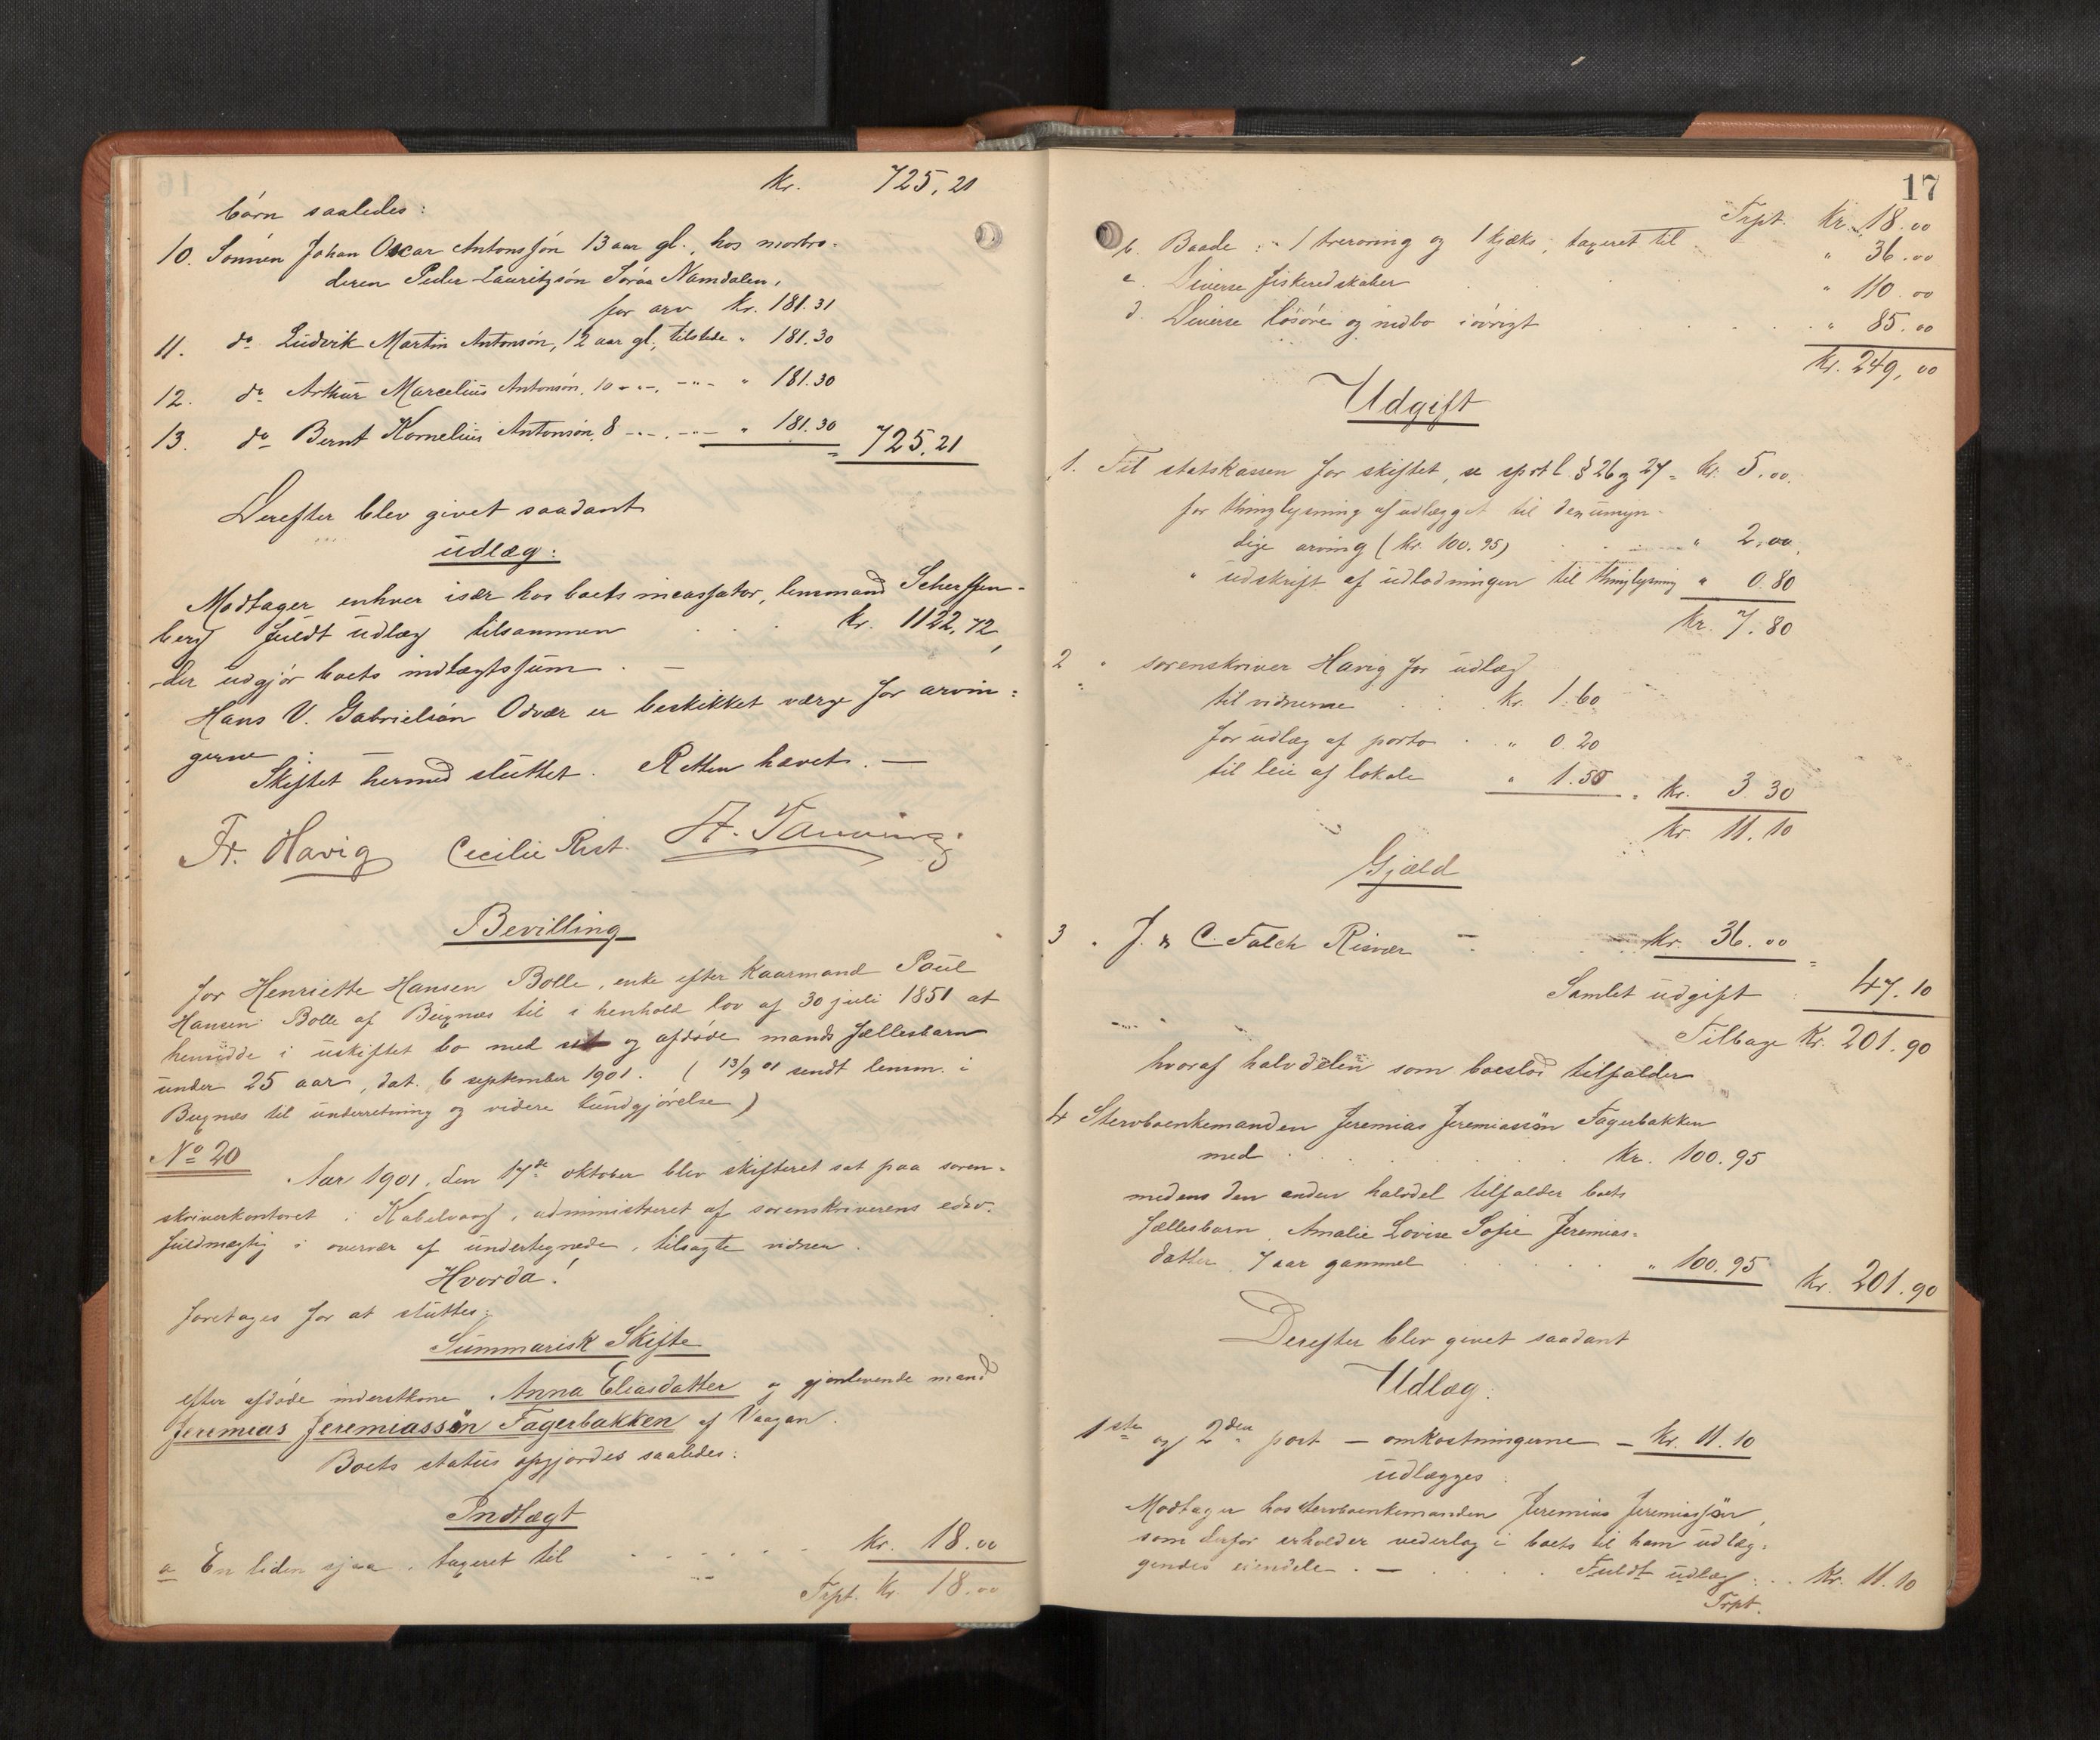 kr. 725,21
børn saaledes:
10. Sønnen Johan Oscar Antonsøn 13 aar gl., hos morbro-
deren Peder Lauritzsøn Søraa Namdalen,
for arv kr. 181.31
11. do Ludvik Martin Antonsøn, 12 aar gl., tilstede " 181.30
12. do Arthur Marcelius Antonsøn, 10 - " -, - " - " 181.30
13. do Bernt Kornelius Antonsøn, 8 - " -, - " - " 181.30 = 725.21
Derefter blev givet saadant
udlæg:
Modtager enhver især hos boets incassator, lensmand Scheffen-
berg fuldt udlæg tilsammen . . . kr. 1122,72,
der udgjør boets indtægtssum. —
Hans V. Gabrielsøn Odvær er beskikket værge for arvin=
gerne. —
Skiftet hermed sluttet. Retten hævet. —
Fr. Havig Cecilie Rist. A. Tanning
Bevilling
for Henriette Hansen Bolle, enke efter kaarmand Poul
Hansen Bolle af Buxnæs til i henhold lov af 30 juli 1851 at
hensidde i uskiftet bo med sit og afdøde mands fællesbarn
under 25 aar, dat. 6 september 1901. ( 13/9 01 sendt lensm. i
Buxnæs til underretning og videre kundgjørelse)
No 20
Aar 1901, den 17de oktober blev skifteret sat paa soren-
skriverkontoret i Kabelvaag, administreret af sorenskriverens edsv.
fuldmægtig i overvær af undertegnede, tilsagte vidner.
Hvorda!
foretages for at sluttes:
Summarisk Skifte
efter afdøde inderstkone Anna Eliasdatter og gjenlevende mand
Jeremias Jeremiassön Fagerbakken af Vaagan.
Boets status opgjordes saaledes:
Indtægt
a En liden sjaa, taxeret til . . . . . . kr. 18.00
Trpt. Kr. 18.00
17
Trpt. Kr. 18.00
b. Baade: - 1 treroring og 1 kjæks, taxeret til " 36.00
c. Diverse fiskeredskaber " 110.00
d. Diverse løsøre og indbo iøvrigt . . . . " 85.00
Kr. 249,00
Udgift
1. Til statskassen for skiftet, se sprtl. § 26 og 27 = kr. 5.00.
for thinglysning af udlægget til den umyn-
dige arving (kr. 100.95) . . " 2.00.
" udskrift af udlodningen til thinglysning " 0.80
Kr. 7.80
2 " sorenskriver Havig for udlæg
til vidnerne . . kr. 1.60
for udlæg af porto . " 0.20
til leie af lokale " 1.50 = kr. 3.30
Kr. 11.10
Gjæld
3 " J. & C. Falch Risvær — . . kr. 36.00 =
Samlet udgift : 47.10
Tilbage Kr. 201.90
hvoraf halvdelen som boeslod tilfalder
4 Stervboenkemanden Jeremias Jeremiassön Fagerbakken
med . . . . . . . . Kr. 100.95
medens den anden halvdel tilfalder boets
fællesbarn, Amalie Lovise Sofie Jeremias=
datter 7 aar gammel . . . . . " 100.95 Kr. 201.90
Derefter blev givet saadant
Udlæg:
1ste og 2den post — omkostningerne — Kr. 11.10
udlægges:
Modtager hos stervboenkemanden Jeremias Jeremiassøn,
som derfor erholder vederlag i boets til ham udlæg=
gendes eiendele. — . . . . Fuldt udlæg: . . Kr. 11.10
Trpt.